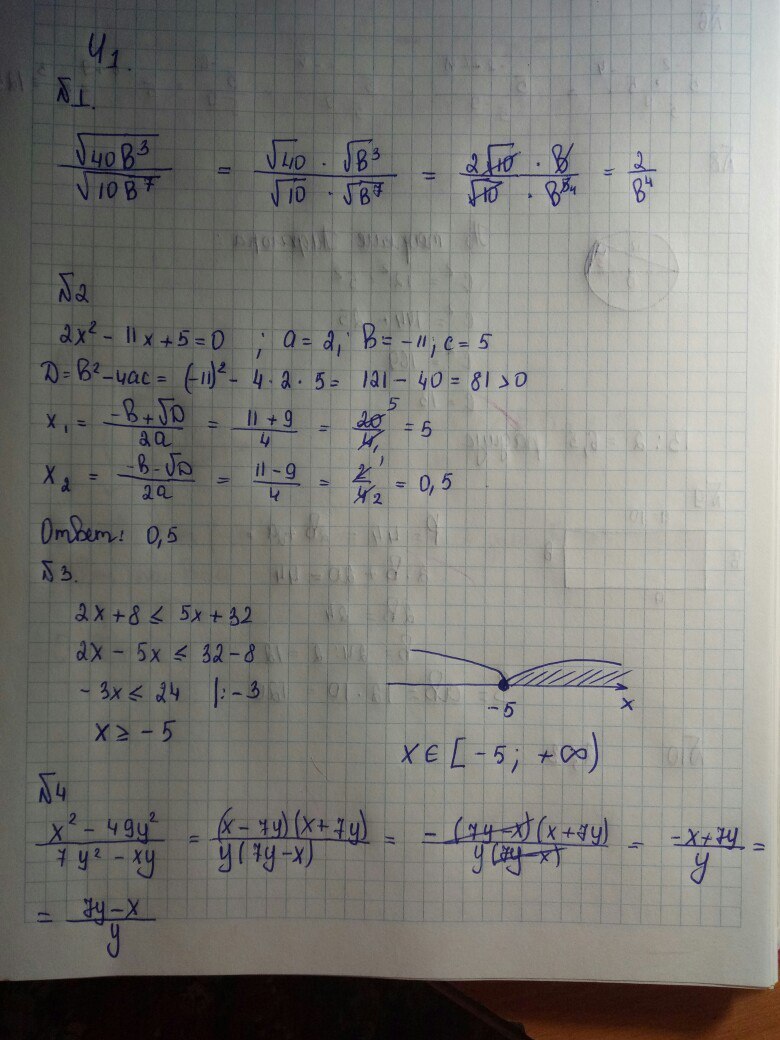 Ч1.
№1.
√40В³/√10В⁷ = √40 · √В³/√10 · √В⁷ = 2√10 · В/√10 · В⁵⁴ = 2/В⁴
№2
2x² - 11x + 5 = 0 ; a = 2; В = -11; c = 5
D = В² - 4ac = (-11)² - 4 · 2 · 5 = 121 - 40 = 81 > 0
x₁ = -В + √D/2a = 11 + 9/4 = 20⁵/4₁ = 5
x₂ = -В - √D/2a = 11 - 9/4 = 2¹/4₂ = 0,5
Ответ: 0,5
№3.
2x + 8 ≤ 5x + 32
2x - 5x ≤ 32 - 8
-3x ≤ 24 |: -3
x ≥ -5
-5 x
x ∈ [-5; +∞)
№4
x² - 49y²/7y² - xy = (x - 7y)(x + 7y)/y(7y - x) = - (7y - x)(x + 7y)/y(7y - x) = -x + 7y/y =
= 7y - x/y